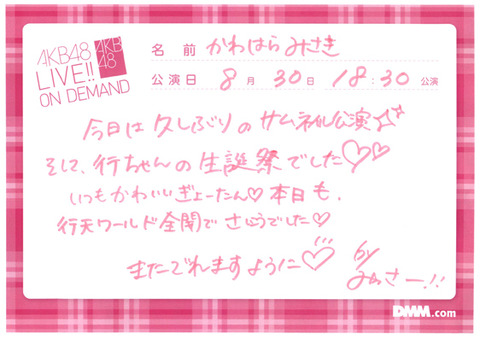 AKB48
LIVE!!
ON DEMAND
AKB
48
名前 かわはらみさき
公演日 8月30日 18:30公演
今日は久しぶりのサムネイル公演
そして、行ちゃんの生誕祭でした♡♡
いつもかわいいぎょーたん♡本日も、
行天ワールド全開でさいこうでした♡
またでれますように♡
by
みさきー!!
DMM.com